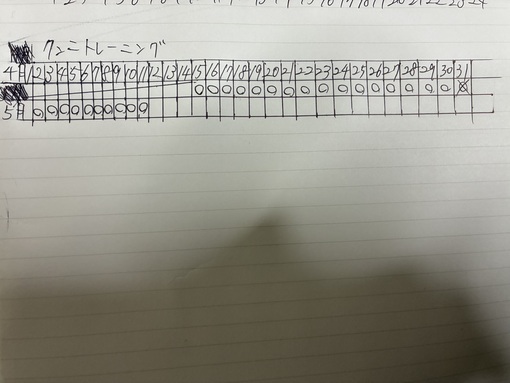 クンニトレーニング
4月 1 2 3 4 5 6 7 8 9 10 11 12 13 14 15 16 17 18 19 20 21 22 23 24 25 26 27 28 29 30 31
○ ○ ○ ○ ○ ○ ○ ○ ○ ○ ○ ○ ○ ○ ○ ○
5月 ○ ○ ○ ○ ○ ○ ○ ○ ○ ○ ○